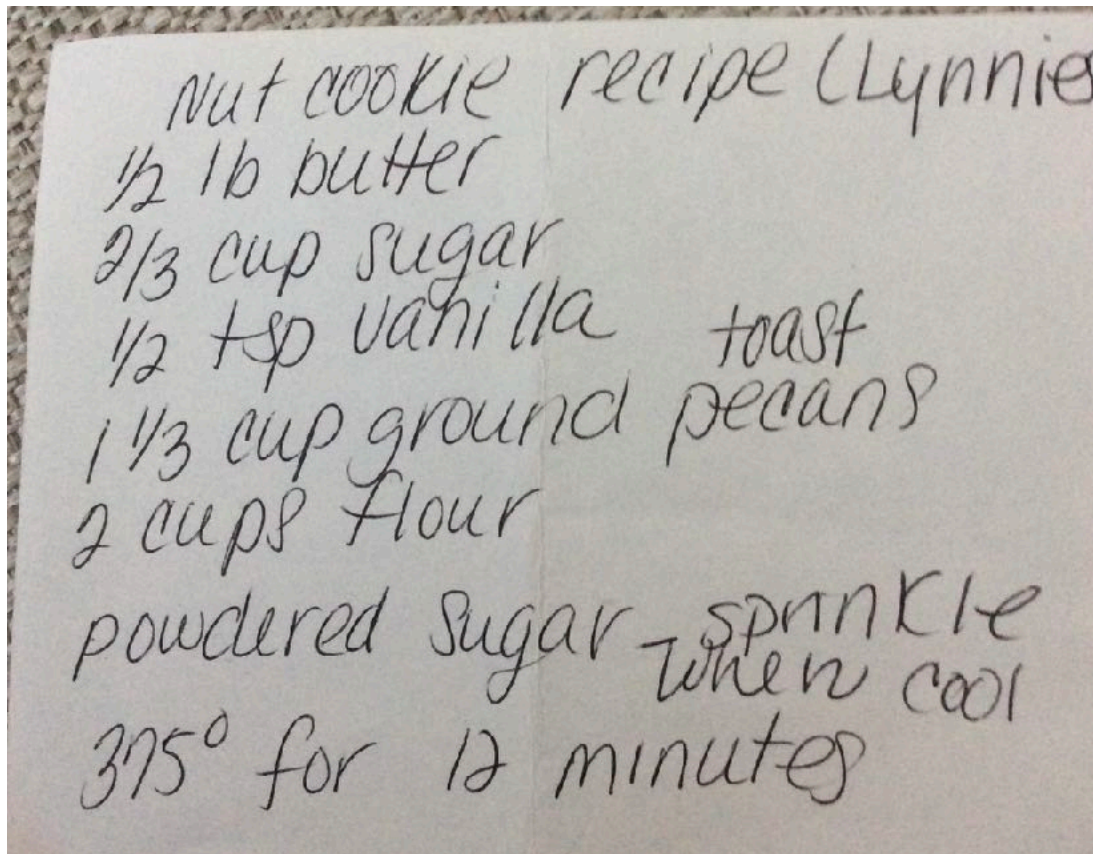 Nut cookie recipe (Lynnies
1/2 lb butter
2/3 cup sugar
1/2 tsp vanilla
toast
1 1/3 cup ground pecans
2 cups flour
powdered sugar - sprinkle
when cool
375° for 12 minutes